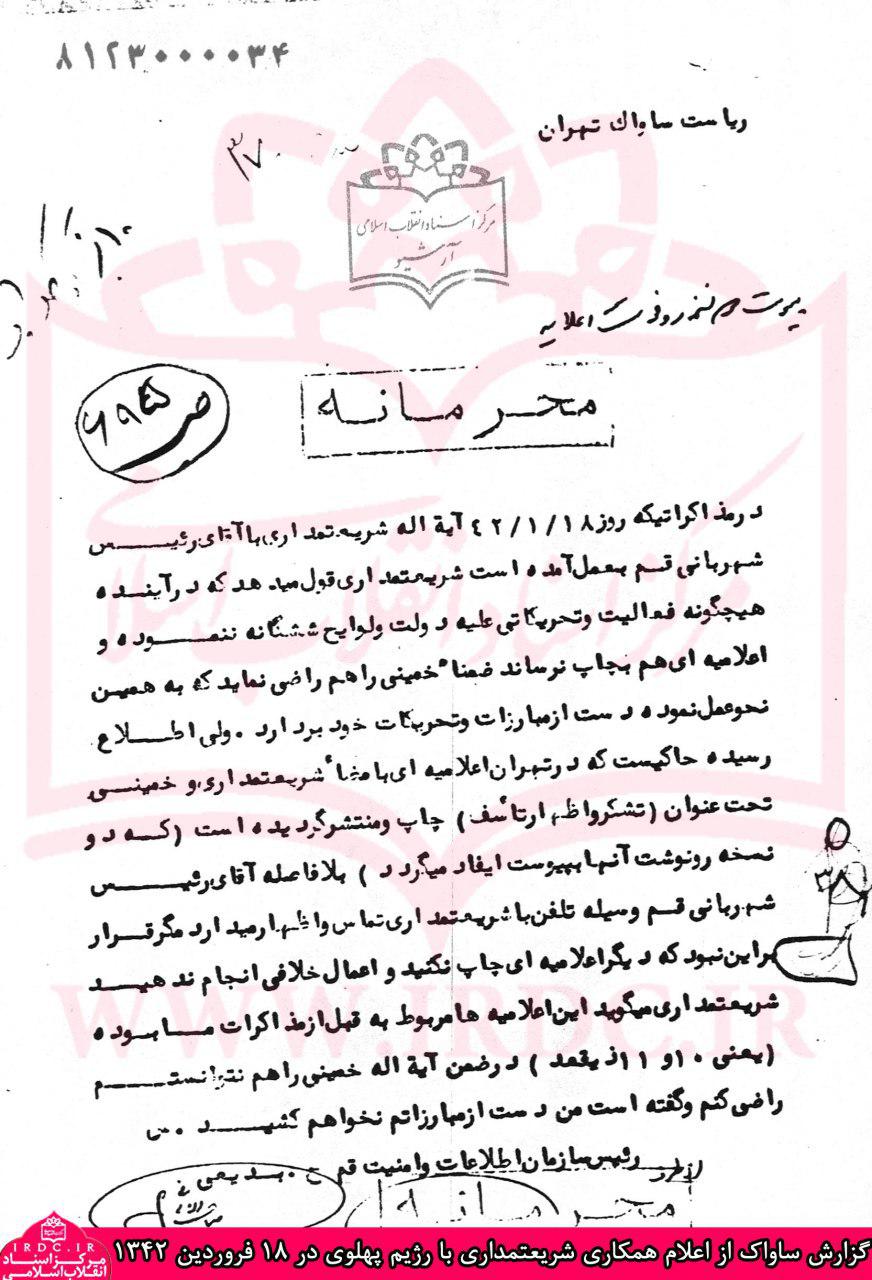 ۸۱۲۳۰۰۰۰۳۴
ریاست ساواک تهران
۳۷
مرکز اسناد انقلاب اسلامی
آرشیو
پیوست دو نسخه رونوشت اعلامیه
محرمانه
در مذاکراتیکه روز ۴۲/۱/۱۸ آیة اله شریعتمداری با آقای رئیس
شهربانی قم بعمل آمده است شریعتمداری قول میدهد که در آینده
هیچگونه فعالیت و تحریکاتی علیه دولت و لوایح ششگانه ننموده و
اعلامیه ای هم بچاپ نرساند ضمناً خمینی را هم راضی نماید که به همین
نحو عمل نموده دست از مبارزات و تحریکات خود بردارد . ولی اطلاع
رسیده حاکیست که در تهران اعلامیه ای با مضاء شریعتمداری و خمینی
تحت عنوان (تشکر و اظهار تأسف) چاپ و منتشر گردیده است (که دو
نسخه رونوشت آنها بپیوست ایفاد میگردد) بلافاصله آقای رئیس
شهربانی قم وسیله تلفن با شریعتمداری تماس و اظهار میدارد مگر قرار
بر این نبود که دیگر اعلامیه ای چاپ نکنید و اعمال خلافی انجام ندهید
شریعتمداری میگوید این اعلامیه ها مربوط به قبل از مذاکرات ما بوده
(یعنی ۱۰ و ۱۱ ذیقعد) در ضمن آیة اله خمینی را هم نتوانستم
راضی کنم و گفته است من دست از مبارزاتم نخواهم کشید . س
رئیس سازمان اطلاعات و امنیت قم ح . بدیعی
محرمانه
WWW.IRDC.IR
گزارش ساواک از اعلام همکاری شریعتمداری با رژیم پهلوی در ۱۸ فروردین ۱۳۴۲
IRDC.IR
مرکز اسناد
انقلاب اسلامی